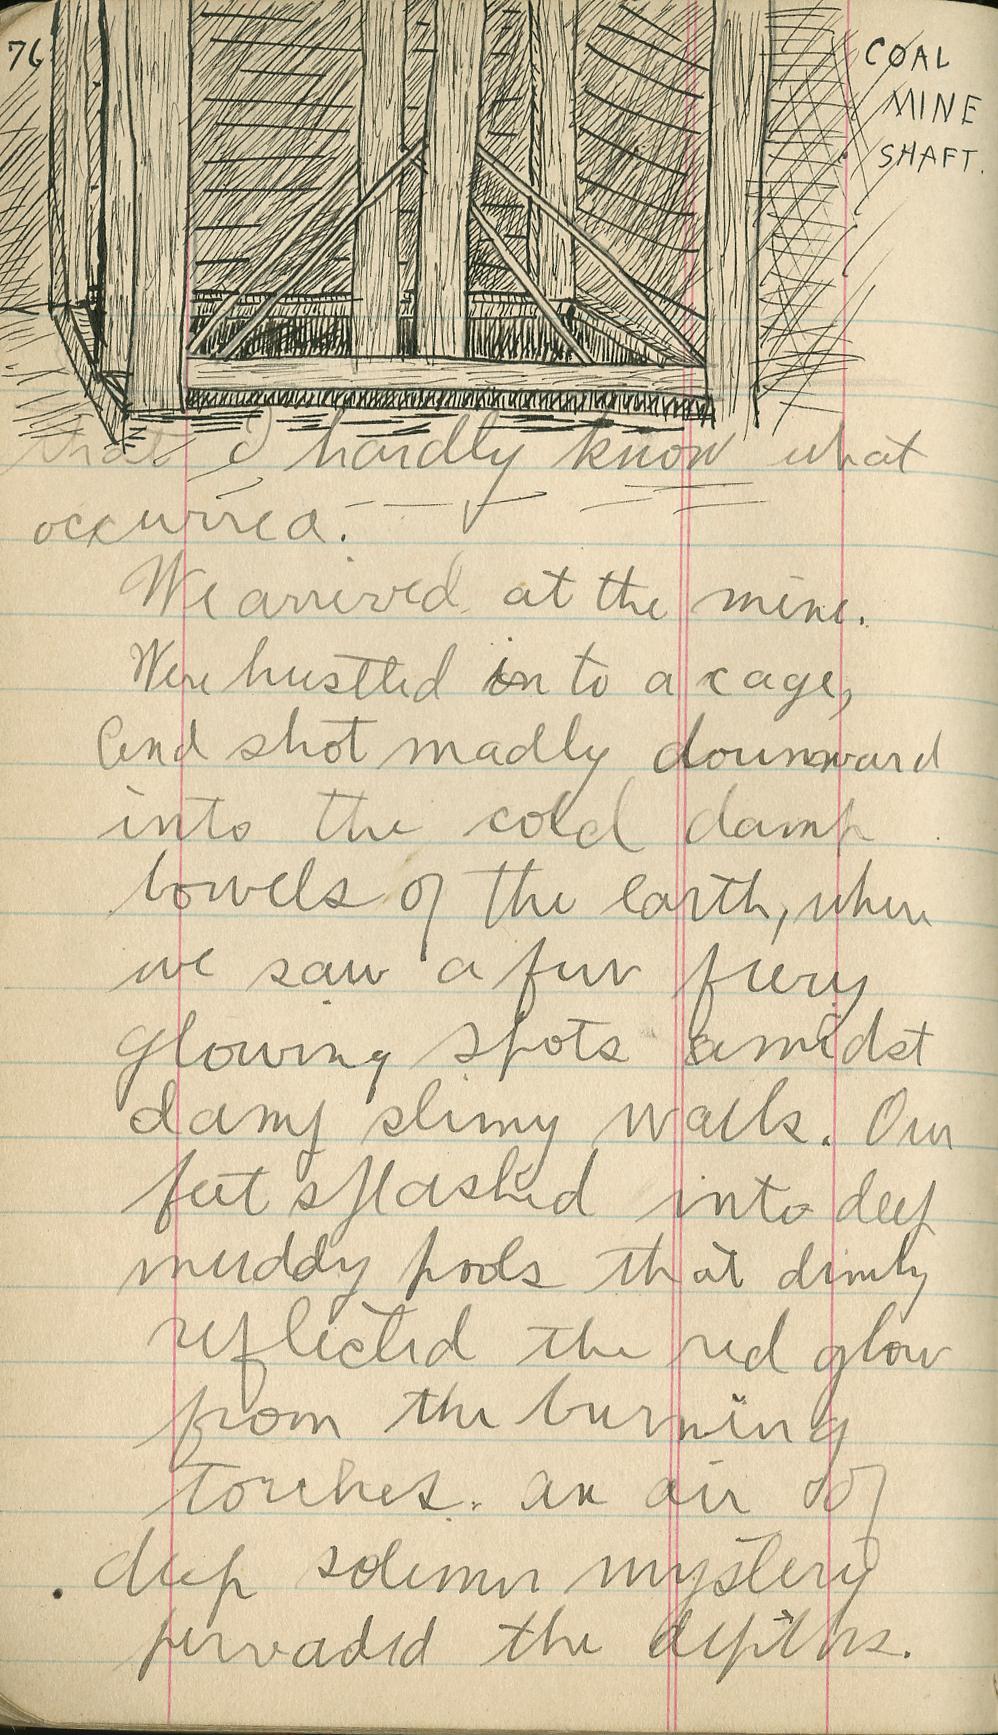 76
COAL
MINE
SHAFT.
that I hardly know what
occurred.
We arrived at the mine.
Were hustled into a cage,
And shot madly downward
into the cold damp
bowels of the earth, where
we saw a few fiery
glowing spots amidst
damp slimy walls. Our
feet splashed into deep
muddy pools that dimly
reflected the red glow
from the burning
torches. an air of
deep solemn mystery
pervaded the depths.